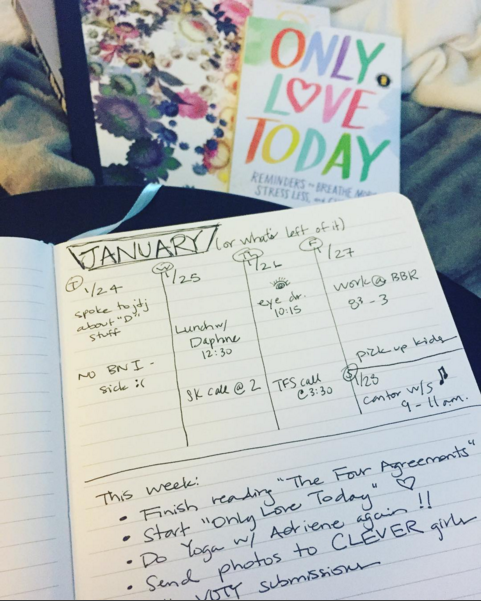 ONLY
LOVE
TODAY
REMINDERS to BREATHE MORE,
STRESS LESS, and
JANUARY (or what's left of it)
T 1/24
spoke to jtj
about "D"
stuff
NO BNI -
sick :(
W 1/25
Lunch w/
Daphne
12:30
SK call @ 2
Th 1/26
eye dr.
10:15
TFS call
@ 3:30
F 1/27
work @ BBR
- 3
pick up kids
S 1/28
cantor w/ S
9 - 11 a.m.
This week:
• Finish reading "The Four Agreements"
• Start "Only Love Today" ♡
• Do Yoga w/ Adriene again!!
• Send photos to CLEVER girls
VOTY submissions